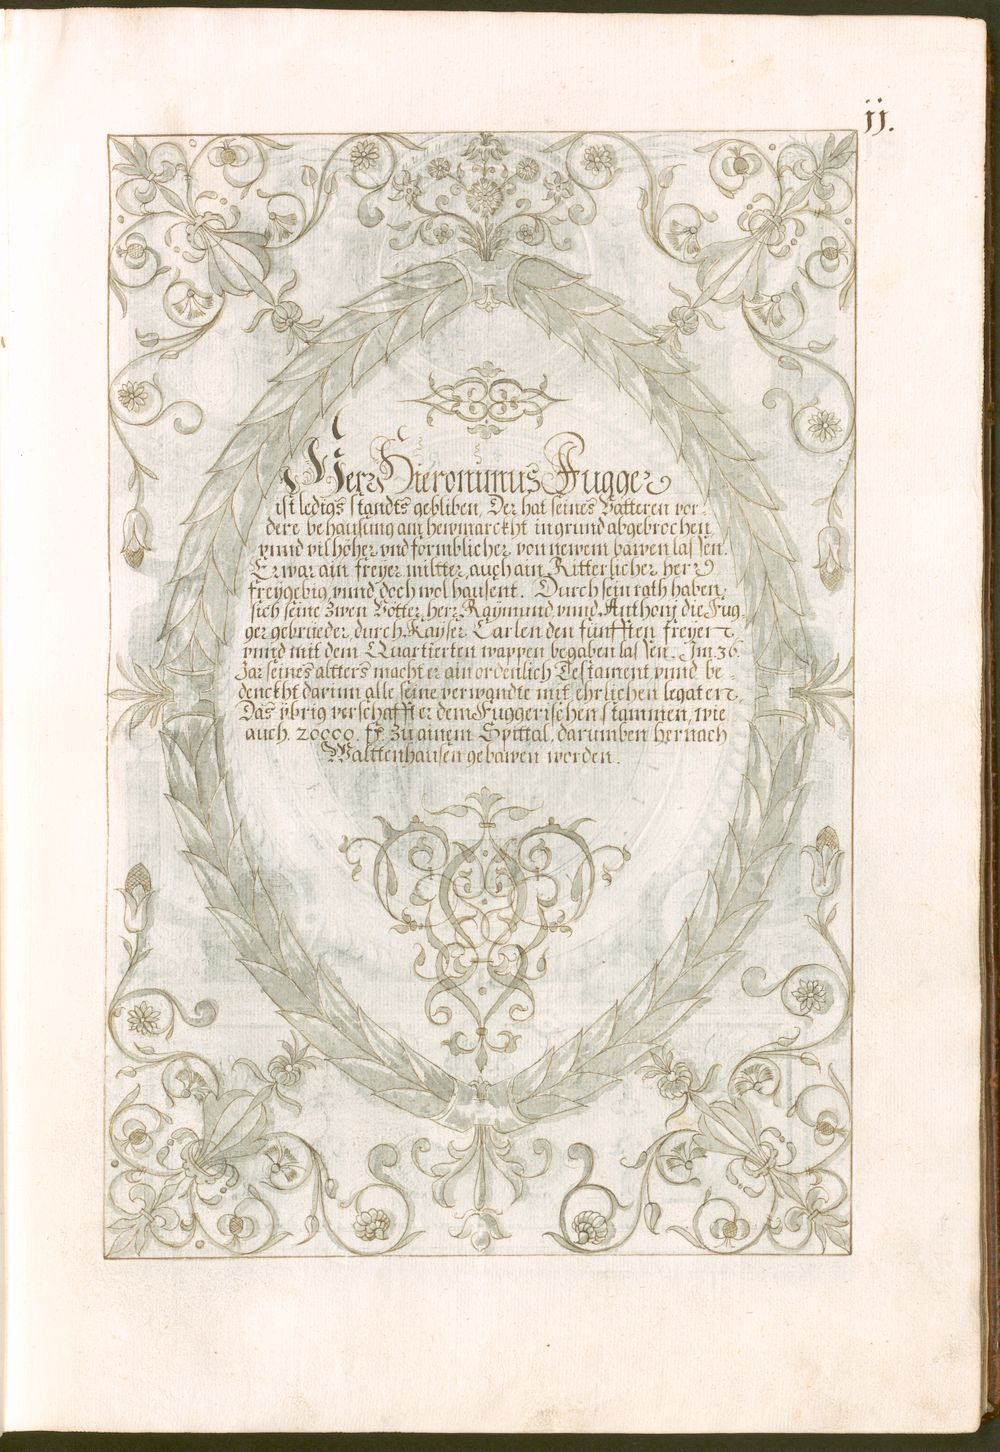 jj.
Herr Hieronimus Fugger
ist ledigs standts gebliben, Der hat seines Vatteren vor-
dere behausung am hewmarckht in grund abgebrochen
vnnd vil höher vnd formblicher von newem bawen lassen.
Er war ain freyer miltter, auch ain Ritterlicher herr
freygebig vnnd doch wol hausent. Durch sein rath haben
sich seine zwen Vötter, herr Raÿmund vnnd Anthonj die Fug-
ger gebrüeder, durch Kaÿser Carlen den fünfften freyen
vnnd mit dem Quartierten wappen begaben lassen. Im 36.
Jar seines altters macht er ain ordenlich Testament vnnd be-
denckht darinn alle seine verwandte mit ehrlichen legaten.
Das ÿbrig verschafft er dem Fuggerischen stammen, wie
auch 20000. fl. Zu ainem Spittal, darumben hernach
Walttenhausen gebawen worden.